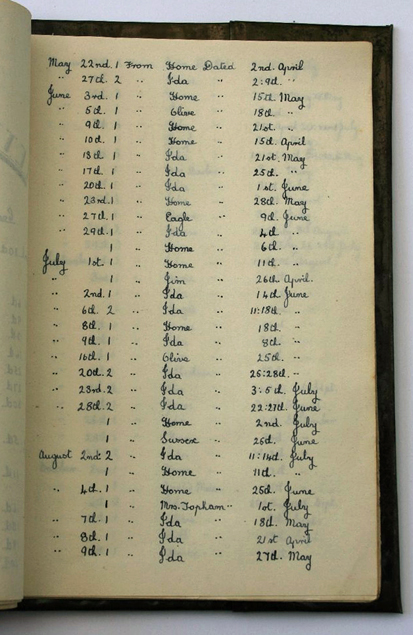 May 22nd. 1 From Home Dated 2nd. April
" 27th. 2 " Ida " 2:9th. "
June 3rd. 1 " Home " 15th May
" 5th. 1 " Olive " 18th "
" 9th. 1 " Home " 21st. "
" 10th. 1 " Home " 15th April
" 13th 1 " Ida " 21st. May
" 17th. 1 " Ida " 25th. "
" 20th. 1 " Ida " 1st. June
" 23rd. 1 " Home " 28th. May
" 27th. 1 " Eagle " 9th. June
" 29th. 1 " Ida " 4th "
1 " Home " 6th. "
July 1st. 1 " Home " 11th. "
" 1 " Jim " 26th April.
" 2nd. 1 " Ida " 14th June
" 6th. 2 " Ida " 11:18th. "
" 8th. 1 " Home " 18th. "
" 9th. 1 " Ida " 8th. "
" 16th. 1 " Olive " 25th. "
" 20th. 2 " Ida " 25:28th. "
" 23rd. 2 " Ida " 3:5th July
" 28th. 2 " Ida " 22:27th June
1 " Home " 2nd July
1 " Sussex " 25th June
August 2nd: 2 " Ida " 11:14th July
1 " Home " 11th "
" 4th. 1 " Home " 25th June
1 " Mrs. Topham " 1st. July
" 7th. 1 " Ida " 18th May
" 8th. 1 " Ida " 21st April
" 9th. 1 " Ida " 27th May